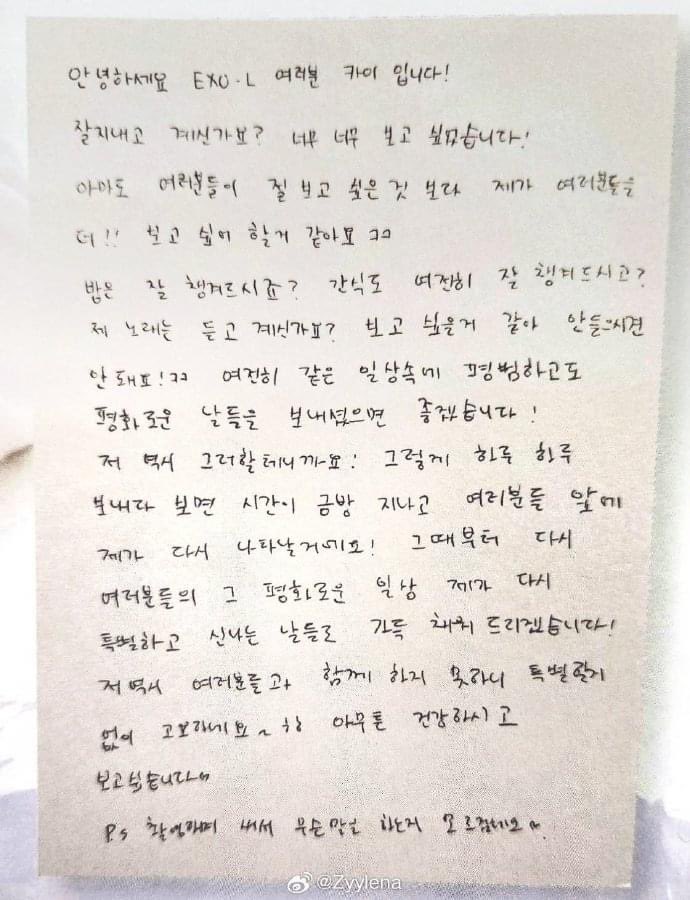 안녕하세요 EXO-L 여러분 카이 입니다!
잘지내고 계신가요? 너무 너무 보고 싶었습니다!
아마도 여러분들이 절 보고 싶은 것 보다 제가 여러분들을
더!! 보고 싶어 할거 같아요 ㅋㅋ
밥은 잘 챙겨드시죠? 간식도 여전히 잘 챙겨드시고?
제 노래는 듣고 계신가요? 보고 싶을거 같아 안들으시면
안돼요!ㅋㅋ 여전히 같은 일상속에 평범하고도
평화로운 날들을 보내셨으면 좋겠습니다!
저 역시 그러할테니까요! 그렇게 하루 하루
보내다 보면 시간이 금방 지나고 여러분들 앞에
제가 다시 나타날거에요! 그때부터 다시
여러분들의 그 평화로운 일상 제가 다시
특별하고 신나는 날들로 가득 채워 드리겠습니다!
저 역시 여러분들과 함께 하지 못하니 특별할게
없이 고요하네요~ ㅎㅎ 아무튼 건강하시고
보고싶습니다
P.s 무슨말을 하는지 모르겠네요~
@Zyylena